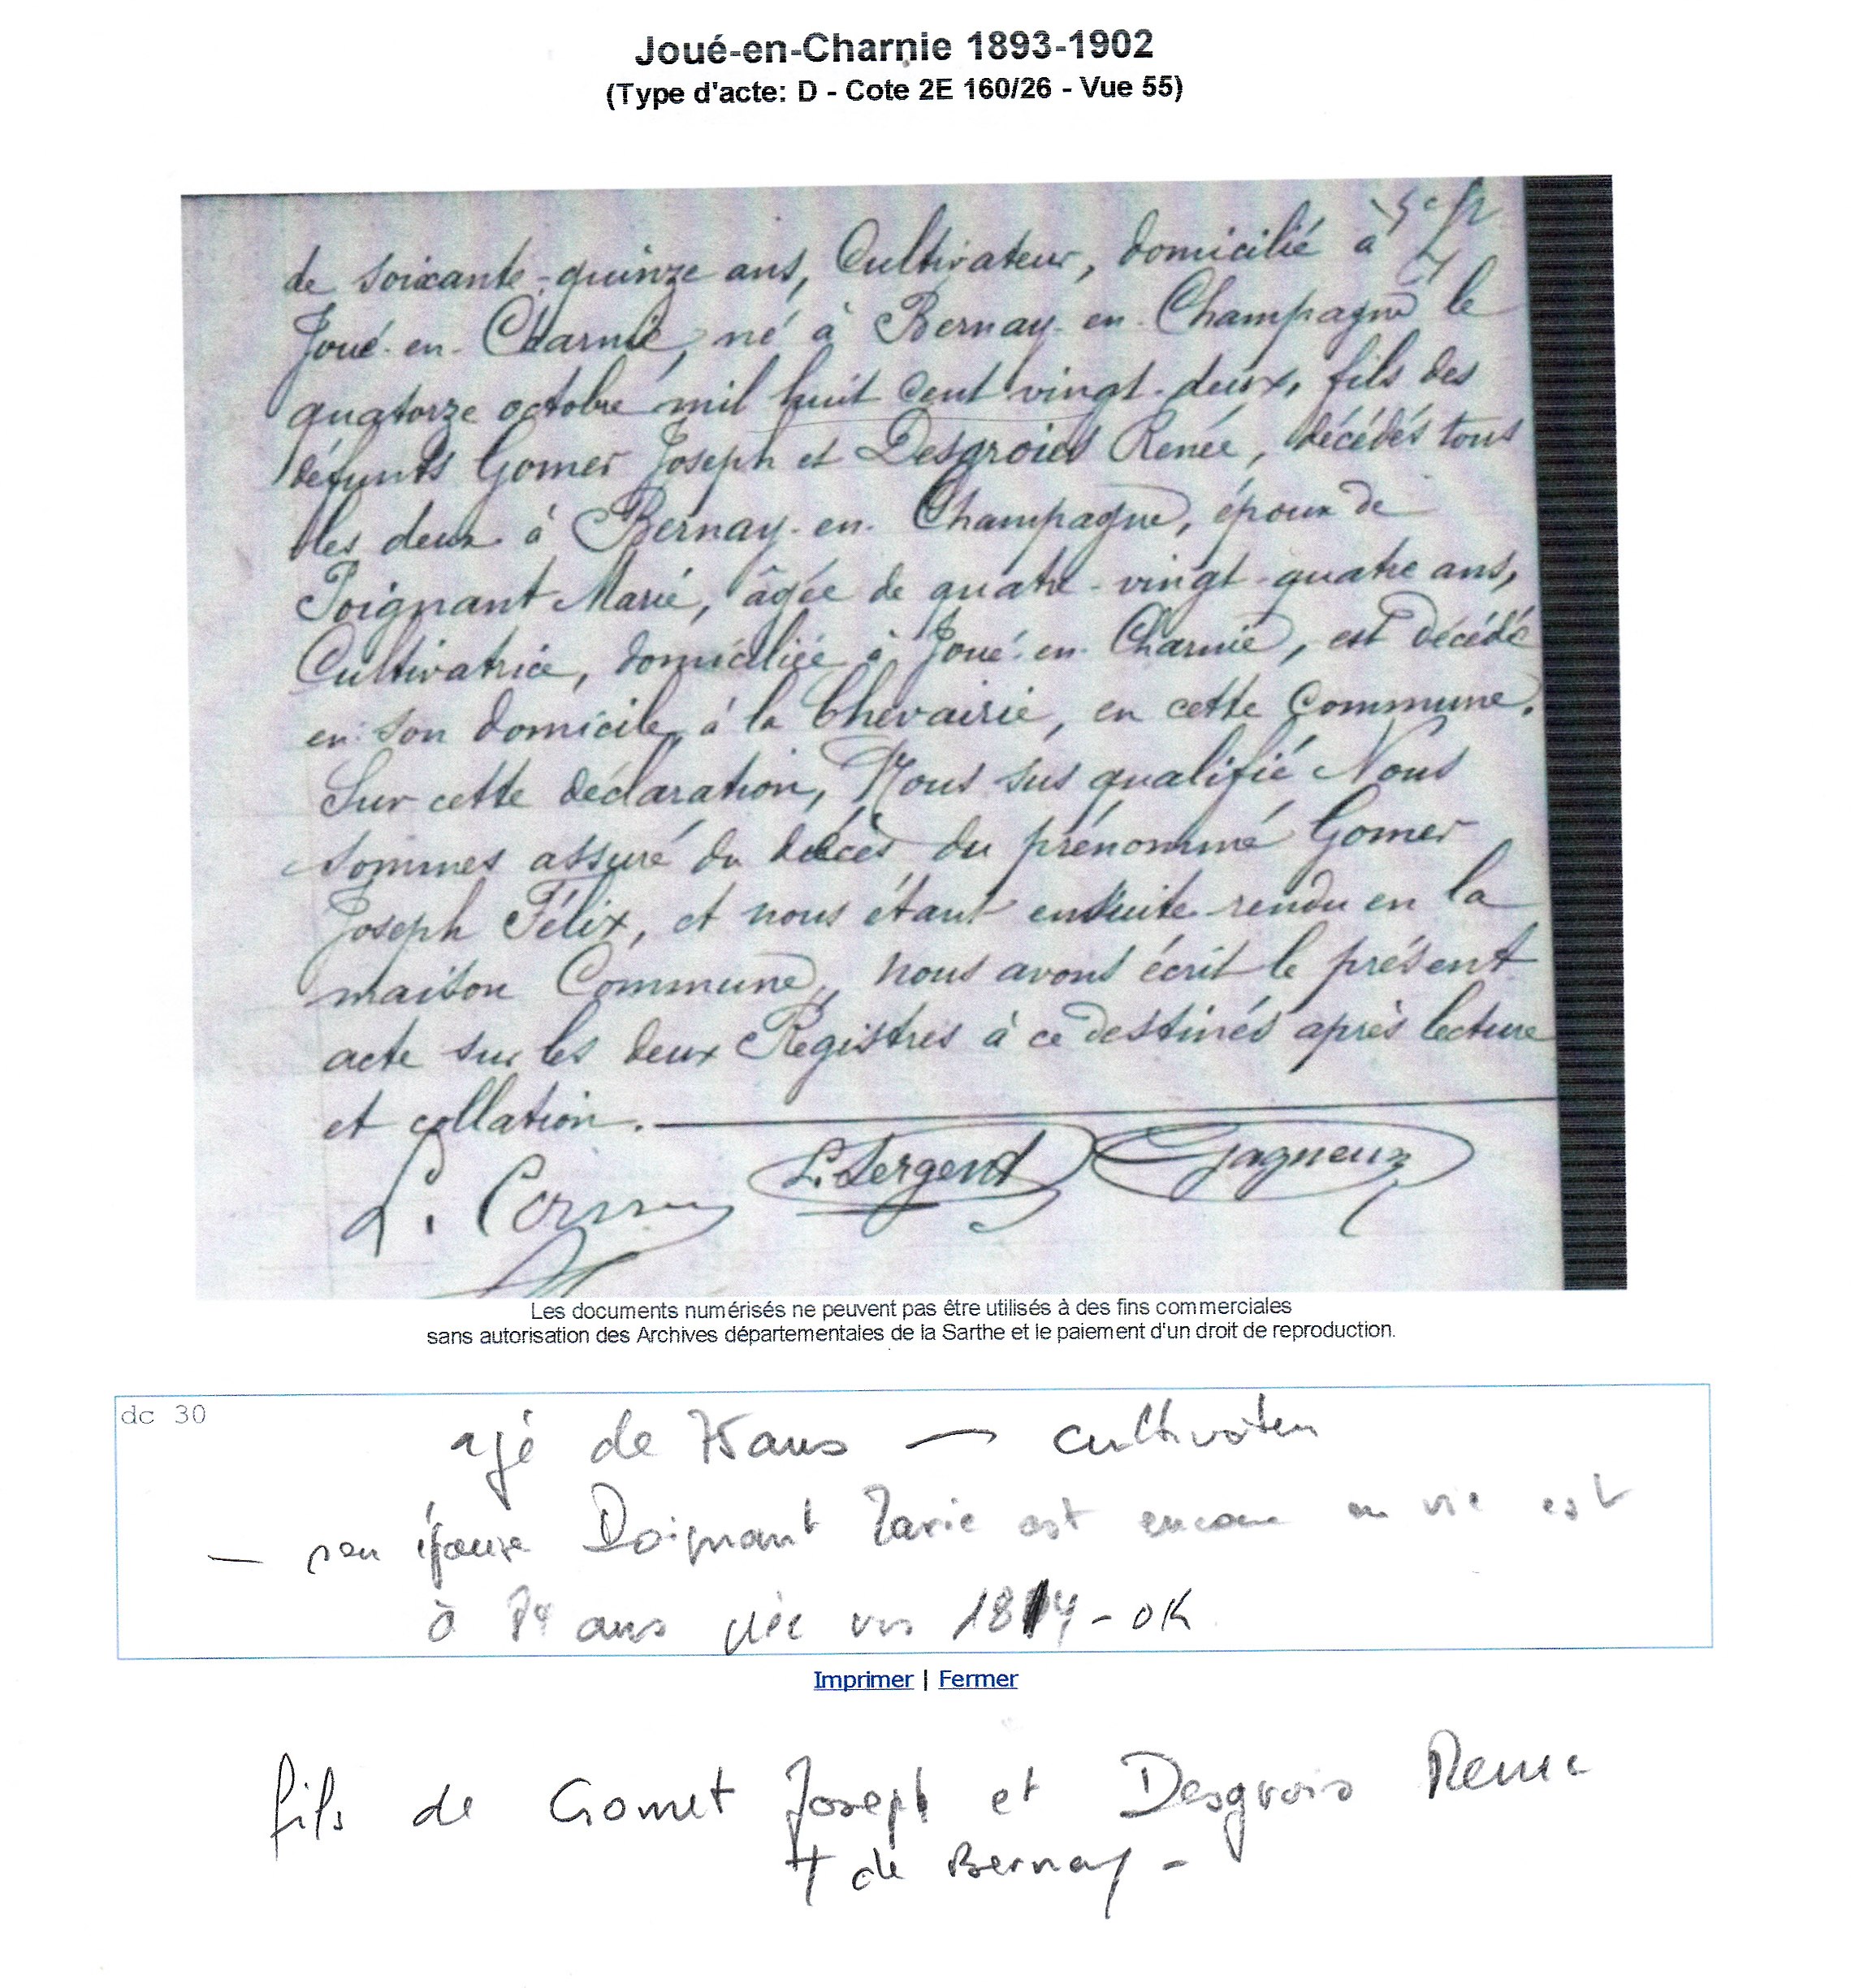 Joué-en-Charnie 1893-1902
(Type d'acte: D - Cote 2E 160/26 - Vue 55)
de soixante-quinze ans, Cultivateur, domicilié à
Joué-en-Charnie, né à Bernay-en-Champagne le
quatorze octobre mil huit cent vingt-deux, fils des
défunts Gomer Joseph et Desgroies Renée, décédés tous
les deux à Bernay-en-Champagne, époux de
Poignant Marie, âgée de quatre-vingt-quatre ans,
Cultivatrice, domiciliée à Joué-en-Charnie, est décédé
en son domicile à la Chevairie, en cette Commune.
Sur cette déclaration, Nous sus qualifié Nous
sommes assuré du décès du prénommé Gomer
Joseph Félix, et nous étant ensuite rendu en la
maison Commune, nous avons écrit le présent
acte sur les deux Registres à ce destinés après lecture
et collation.
L. Sergent Gagneux
Les documents numérisés ne peuvent pas être utilisés à des fins commerciales
sans autorisation des Archives départementales de la Sarthe et le paiement d'un droit de reproduction.
dc 30
agé de 75 ans — cultivateu
— son épouse Poignant Marie est encore en vie est
à 84 ans née vers 1814 - OK
Imprimer | Fermer
fils de Gomet Joseph et Desgrois Renée
† de Bernay -